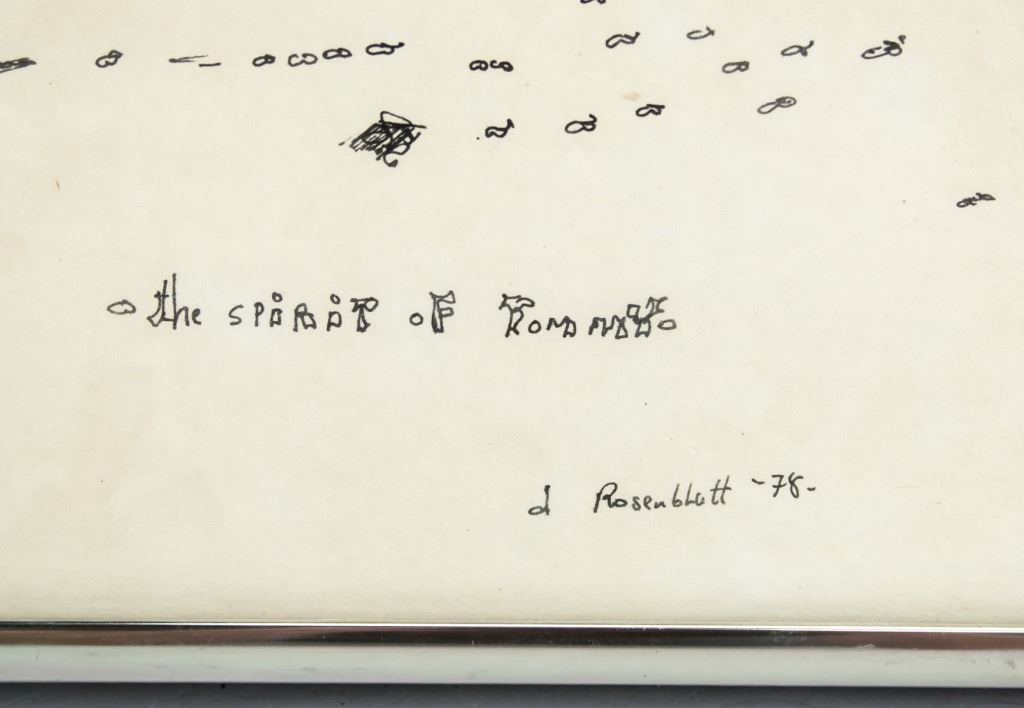 the spirit of
d Rosenblatt -78-